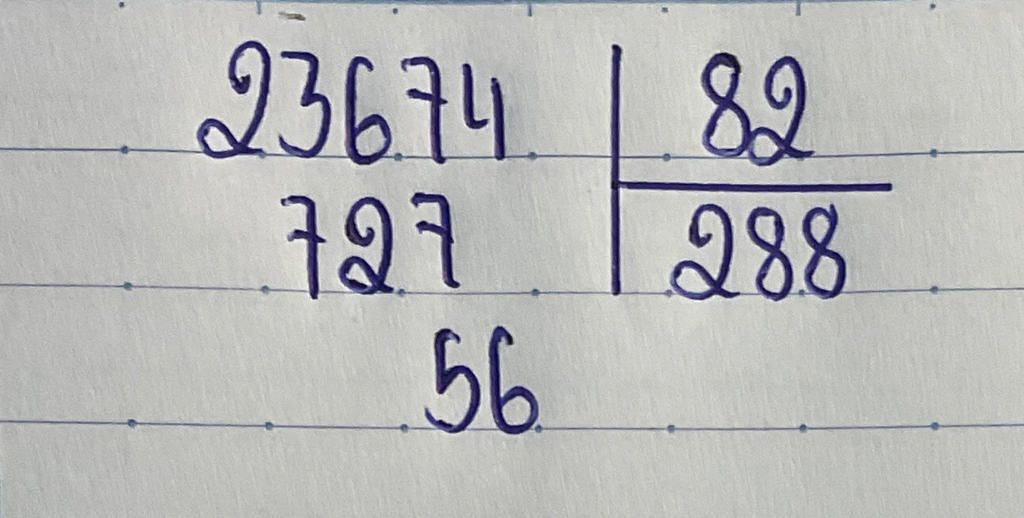 23674 82
727 288
56